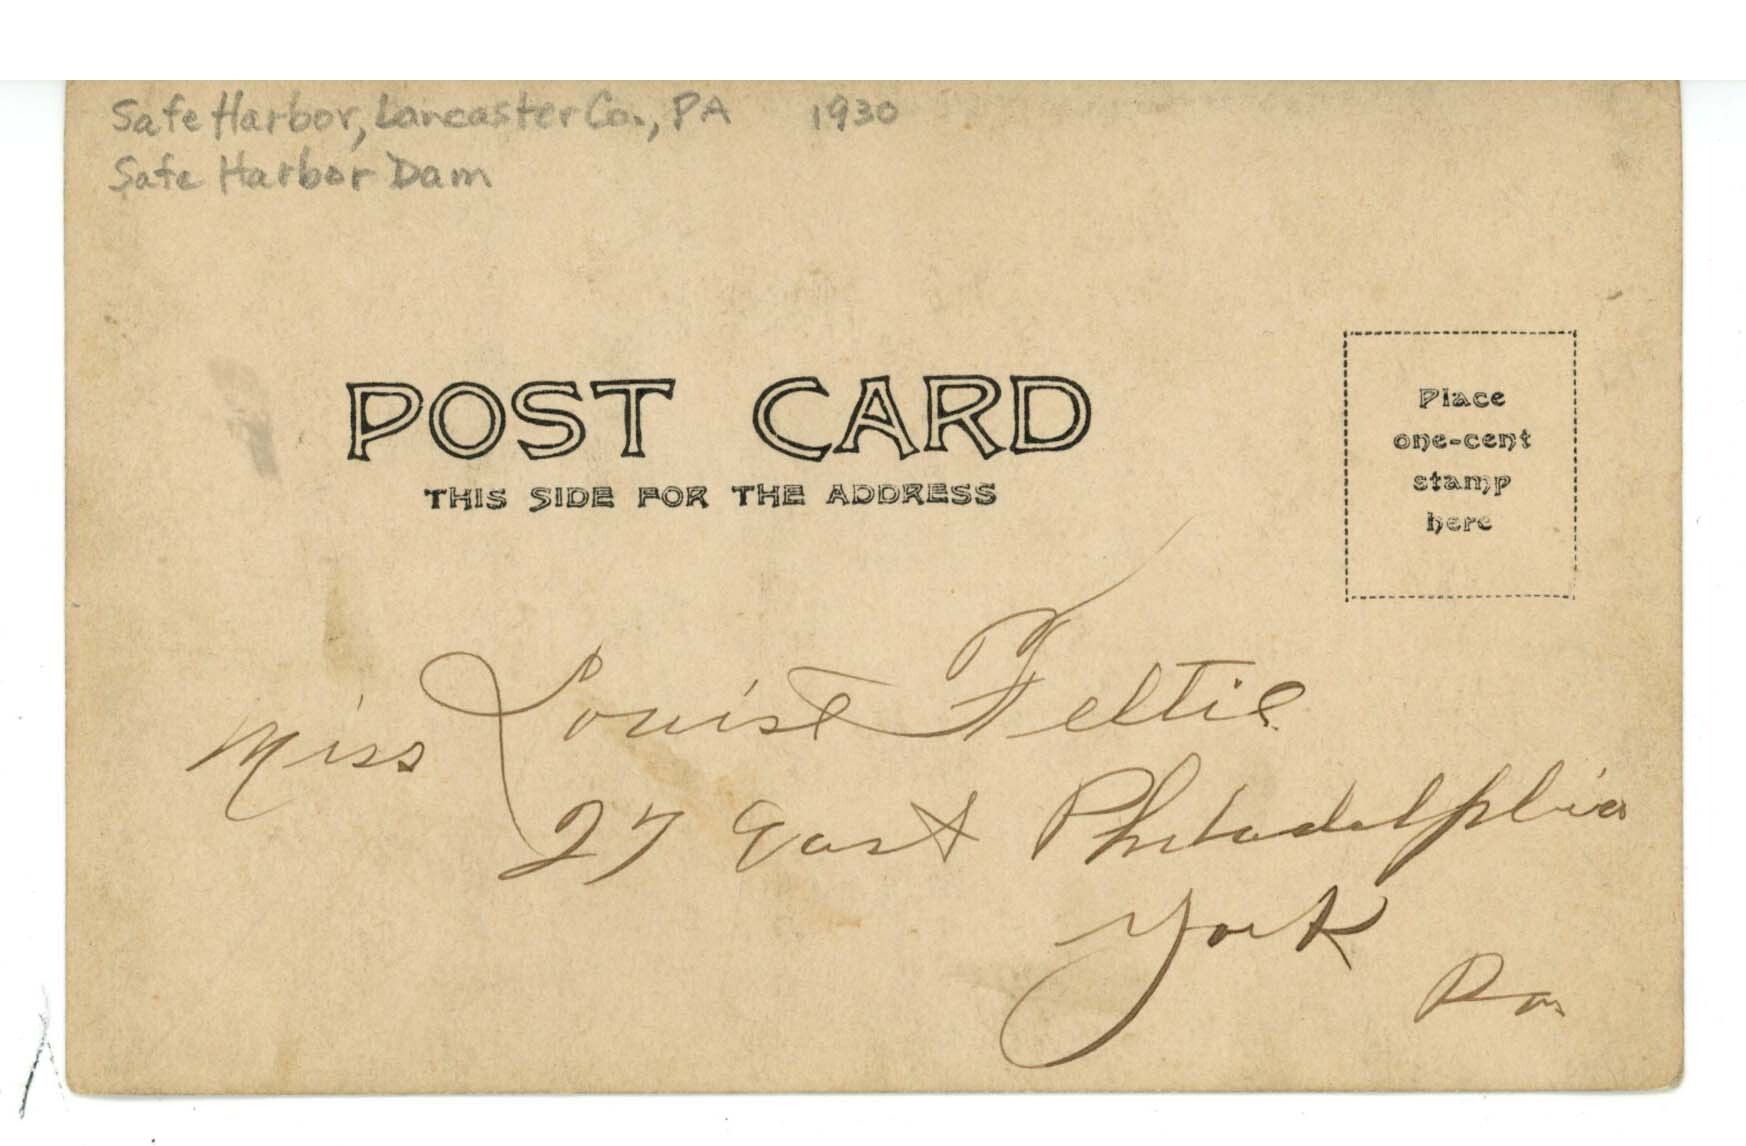 Safe Harbor, Lancaster Co., PA 1930
Safe Harbor Dam
POST CARD
THIS SIDE FOR THE ADDRESS
Place
one-cent
stamp
here
Miss Louise Feltie
27 East Philadelphia
York
Pa